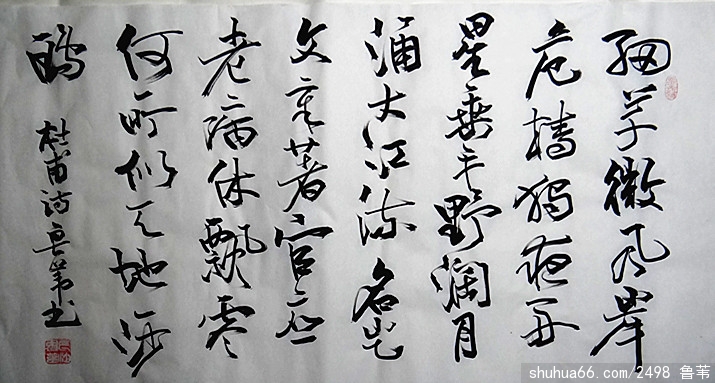 細草微風岸
危樯獨夜舟
星垂平野濶月
涌大江流名岂
文章著官应
老病休飘零
何所似天地沙
鸥
杜甫诗鲁苇书
shuhua66.com/2498 鲁苇